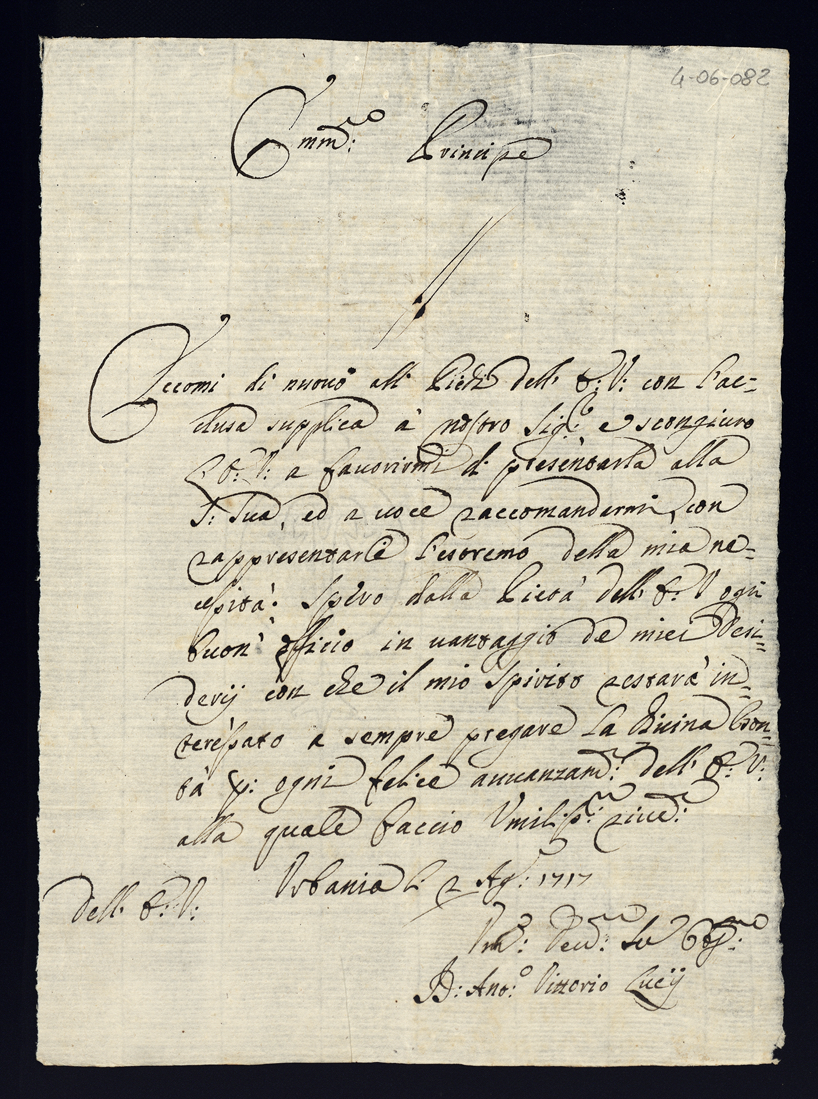 4-06-082
Emm:o Principe
Eccomi di nuovo alli Piedi dell' E: V: con l'ac=
clusa supplica à nostro Sig:e e scongiuro
l'E: V: a favorirmi di presentarla alla
S: Sua, ed a voce raccomandermi, con
rappresentarle l'estremo della mia ne=
cessità: Spero dalla Pietà dell' E: V ogni
buon' officio in vantaggio de miei Desi=
derij con che il mio Spirito restarà in=
teressato a sempre pregare la Divina Bon=
tà p: ogni felice avvanzam: dell' E: V:
alla quale faccio Umiliss: river:
Urbania li 2 Ag: 1717
dell' E: V:
Um: Dev: Se
D: Ant:o Vittorio Lucij